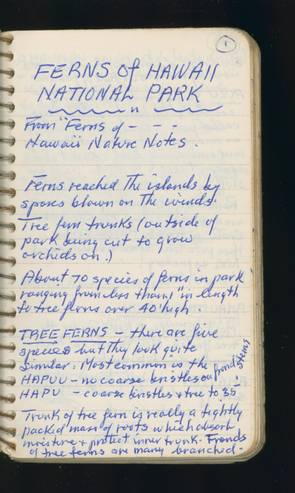 1
FERNS of HAWAII
NATIONAL PARK
From "Ferns of - - -
Hawaii Nature Notes.
Ferns reached the islands by
spores blown on the winds.
Tree fern trunks (outside of
park being cut to grow
orchids on.)
About 70 species of ferns in park
ranging from less than 1" in length
to tree ferns over 40' high.
TREE FERNS - there are five
species but they look quite
similar. Most common is the
HAPUU - no coarse bristles on frond stems
HAPU - coarse bristles & tree to 35'
Trunk of tree fern is really a tightly
packed mass of roots which absorb
moisture & protect inner trunk. Fronds
of tree ferns are many branched.